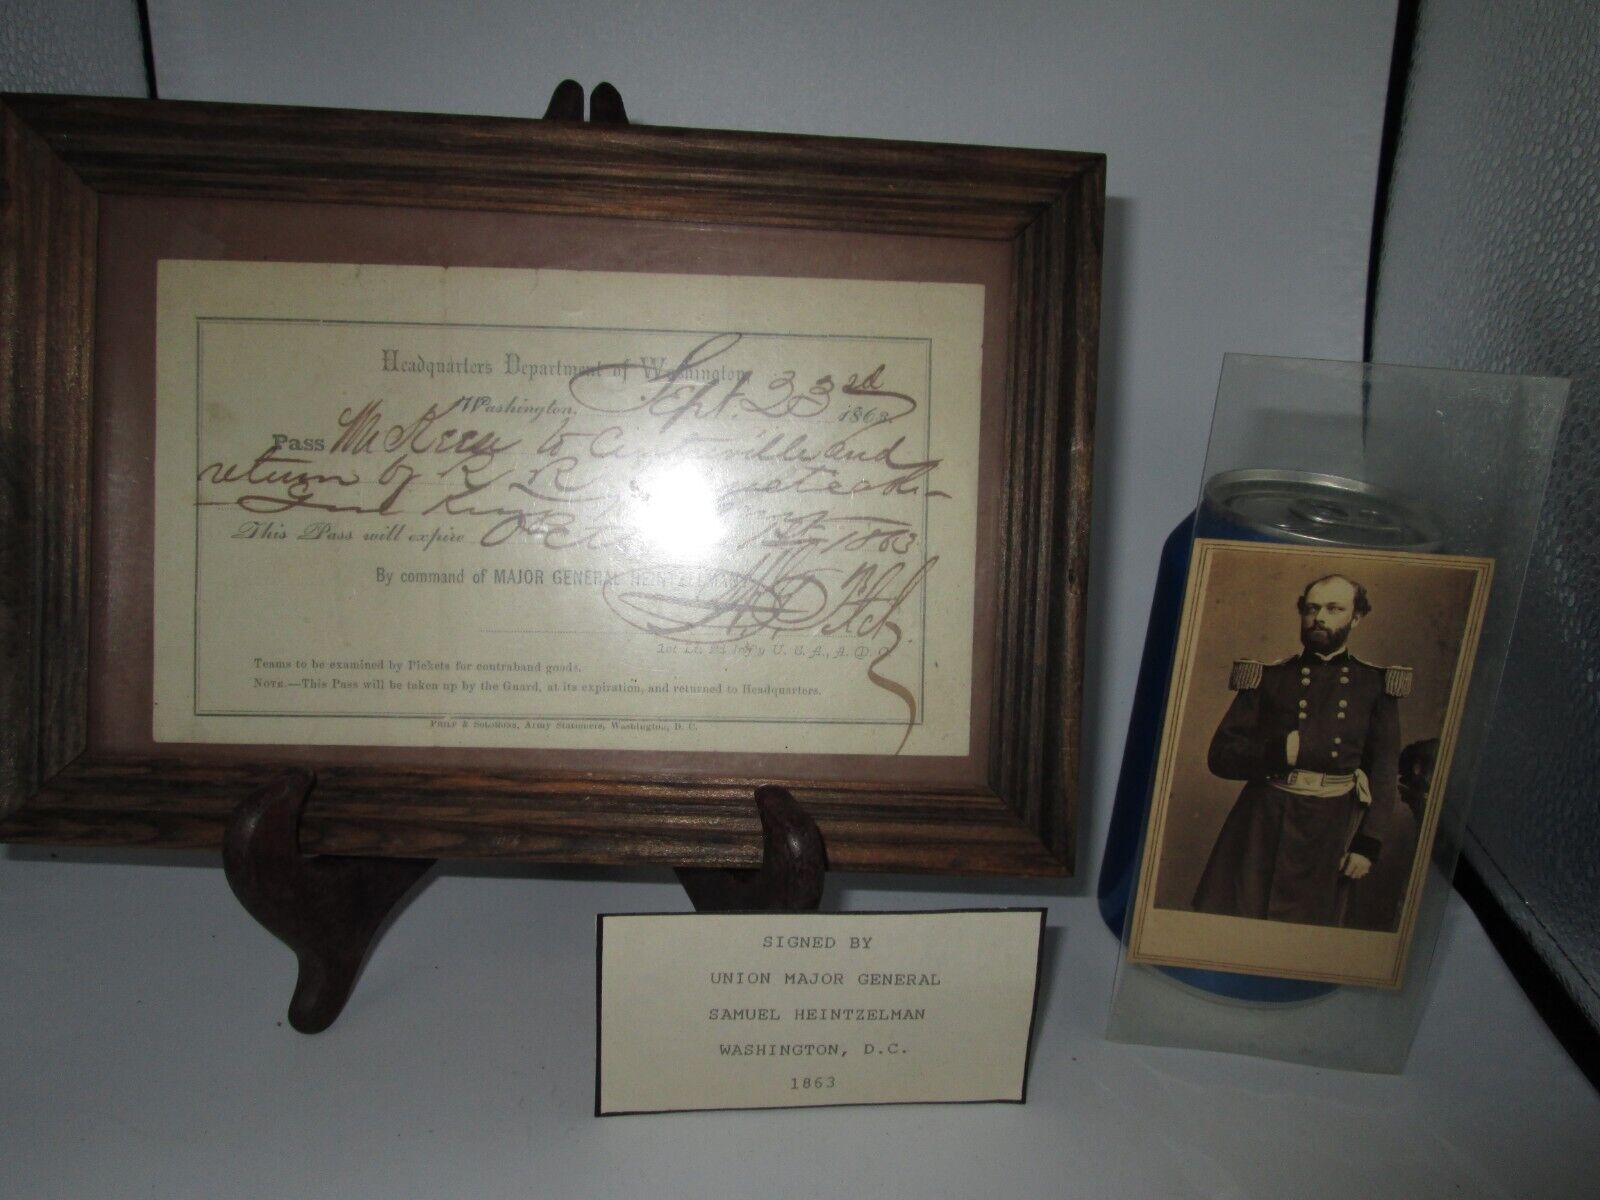 Headquarters Department of Washington
Washington, Sept. 23rd 1863.
Pass Mc Keen to Centreville and
return by R R
This Pass will expire October 1st 1863
By command of MAJOR GENERAL HEINTZELMAN
1st Lt. Inf'y U. S. A., A. D. C.
Teams to be examined by Pickets for contraband goods.
NOTE.—This Pass will be taken up by the Guard, at its expiration, and returned to Headquarters.
PHILP & SOLOMONS, Army Stationers, Washington, D. C.
SIGNED BY
UNION MAJOR GENERAL
SAMUEL HEINTZELMAN
WASHINGTON, D.C.
1863